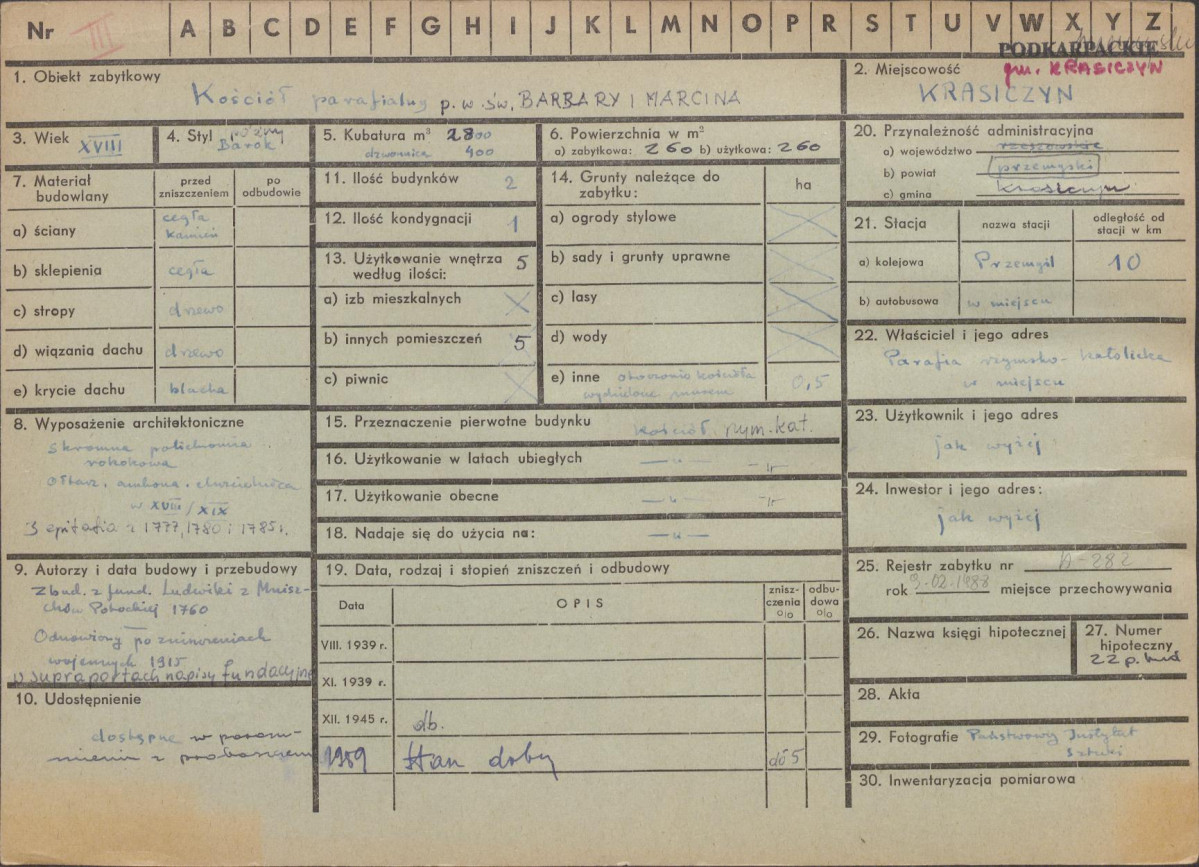 Nr III A B C D E F G H I J K L M N O P R S T U V W X Y Z
PODKARPACKIE
1. Obiekt zabytkowy
Kościół parafialny p.w. św. BARBARY I MARCINA
2. Miejscowość
gm. KRASICZYN
KRASICZYN
3. Wiek XVIII
4. Styl późny
Barok
5. Kubatura m³ 2800
dzwonnica 400
6. Powierzchnia w m²
a) zabytkowa: 260 b) użytkowa: 260
20. Przynależność administracyjna
a) województwo rzeszowskie
b) powiat przemyski
c) gmina Krasiczyn
7. Materiał
budowlany
przed
zniszczeniem
po
odbudowie
a) ściany cegła
kamień
b) sklepienia cegła
c) stropy drzewo
d) wiązania dachu drzewo
e) krycie dachu blacha
11. Ilość budynków 2
12. Ilość kondygnacji 1
13. Użytkowanie wnętrza 5
według ilości:
a) izb mieszkalnych
b) innych pomieszczeń 5
c) piwnic
14. Grunty należące do
zabytku:
ha
a) ogrody stylowe
b) sady i grunty uprawne
c) lasy
d) wody
e) inne otoczenie kościoła 0,5
wydzielone murem
21. Stacja
nazwa stacji
odległość od
stacji w km
a) kolejowa Przemyśl 10
b) autobusowa w miejscu
22. Właściciel i jego adres
Parafia rzymsko-katolicka
w miejscu
8. Wyposażenie architektoniczne
Skromna polichromia
rokokowa
Ołtarz, ambona, chrzcielnica
w XVIII/XIX
3 epitafia z 1777, 1780 i 1785 r.
15. Przeznaczenie pierwotne budynku kościół rzym.-kat.
16. Użytkowanie w latach ubiegłych —"— —"—
17. Użytkowanie obecne —"— —"—
18. Nadaje się do użycia na: —"—
23. Użytkownik i jego adres
jak wyżej
24. Inwestor i jego adres:
jak wyżej
9. Autorzy i data budowy i przebudowy
Zbud. z fund. Ludwiki z Mnisz-
chów Potockiej 1760
Odnowiony po zniszczeniach
wojennych 1915
w supraportach napisy fundacyjne
19. Data, rodzaj i stopień zniszczeń i odbudowy
Data
OPIS
znisz-
czenia
%
odbu-
dowa
%
VIII. 1939 r.
XI. 1939 r.
XII. 1945 r. db.
1959 Stan dobry do 5
25. Rejestr zabytku nr A-282
rok 3.02.1988 miejsce przechowywania
26. Nazwa księgi hipotecznej
27. Numer
hipoteczny
22 p.
28. Akta
29. Fotografie Państwowy Instytut
Sztuki
30. Inwentaryzacja pomiarowa
10. Udostępnienie
dostępne w porozu-
mieniu z proboszczem